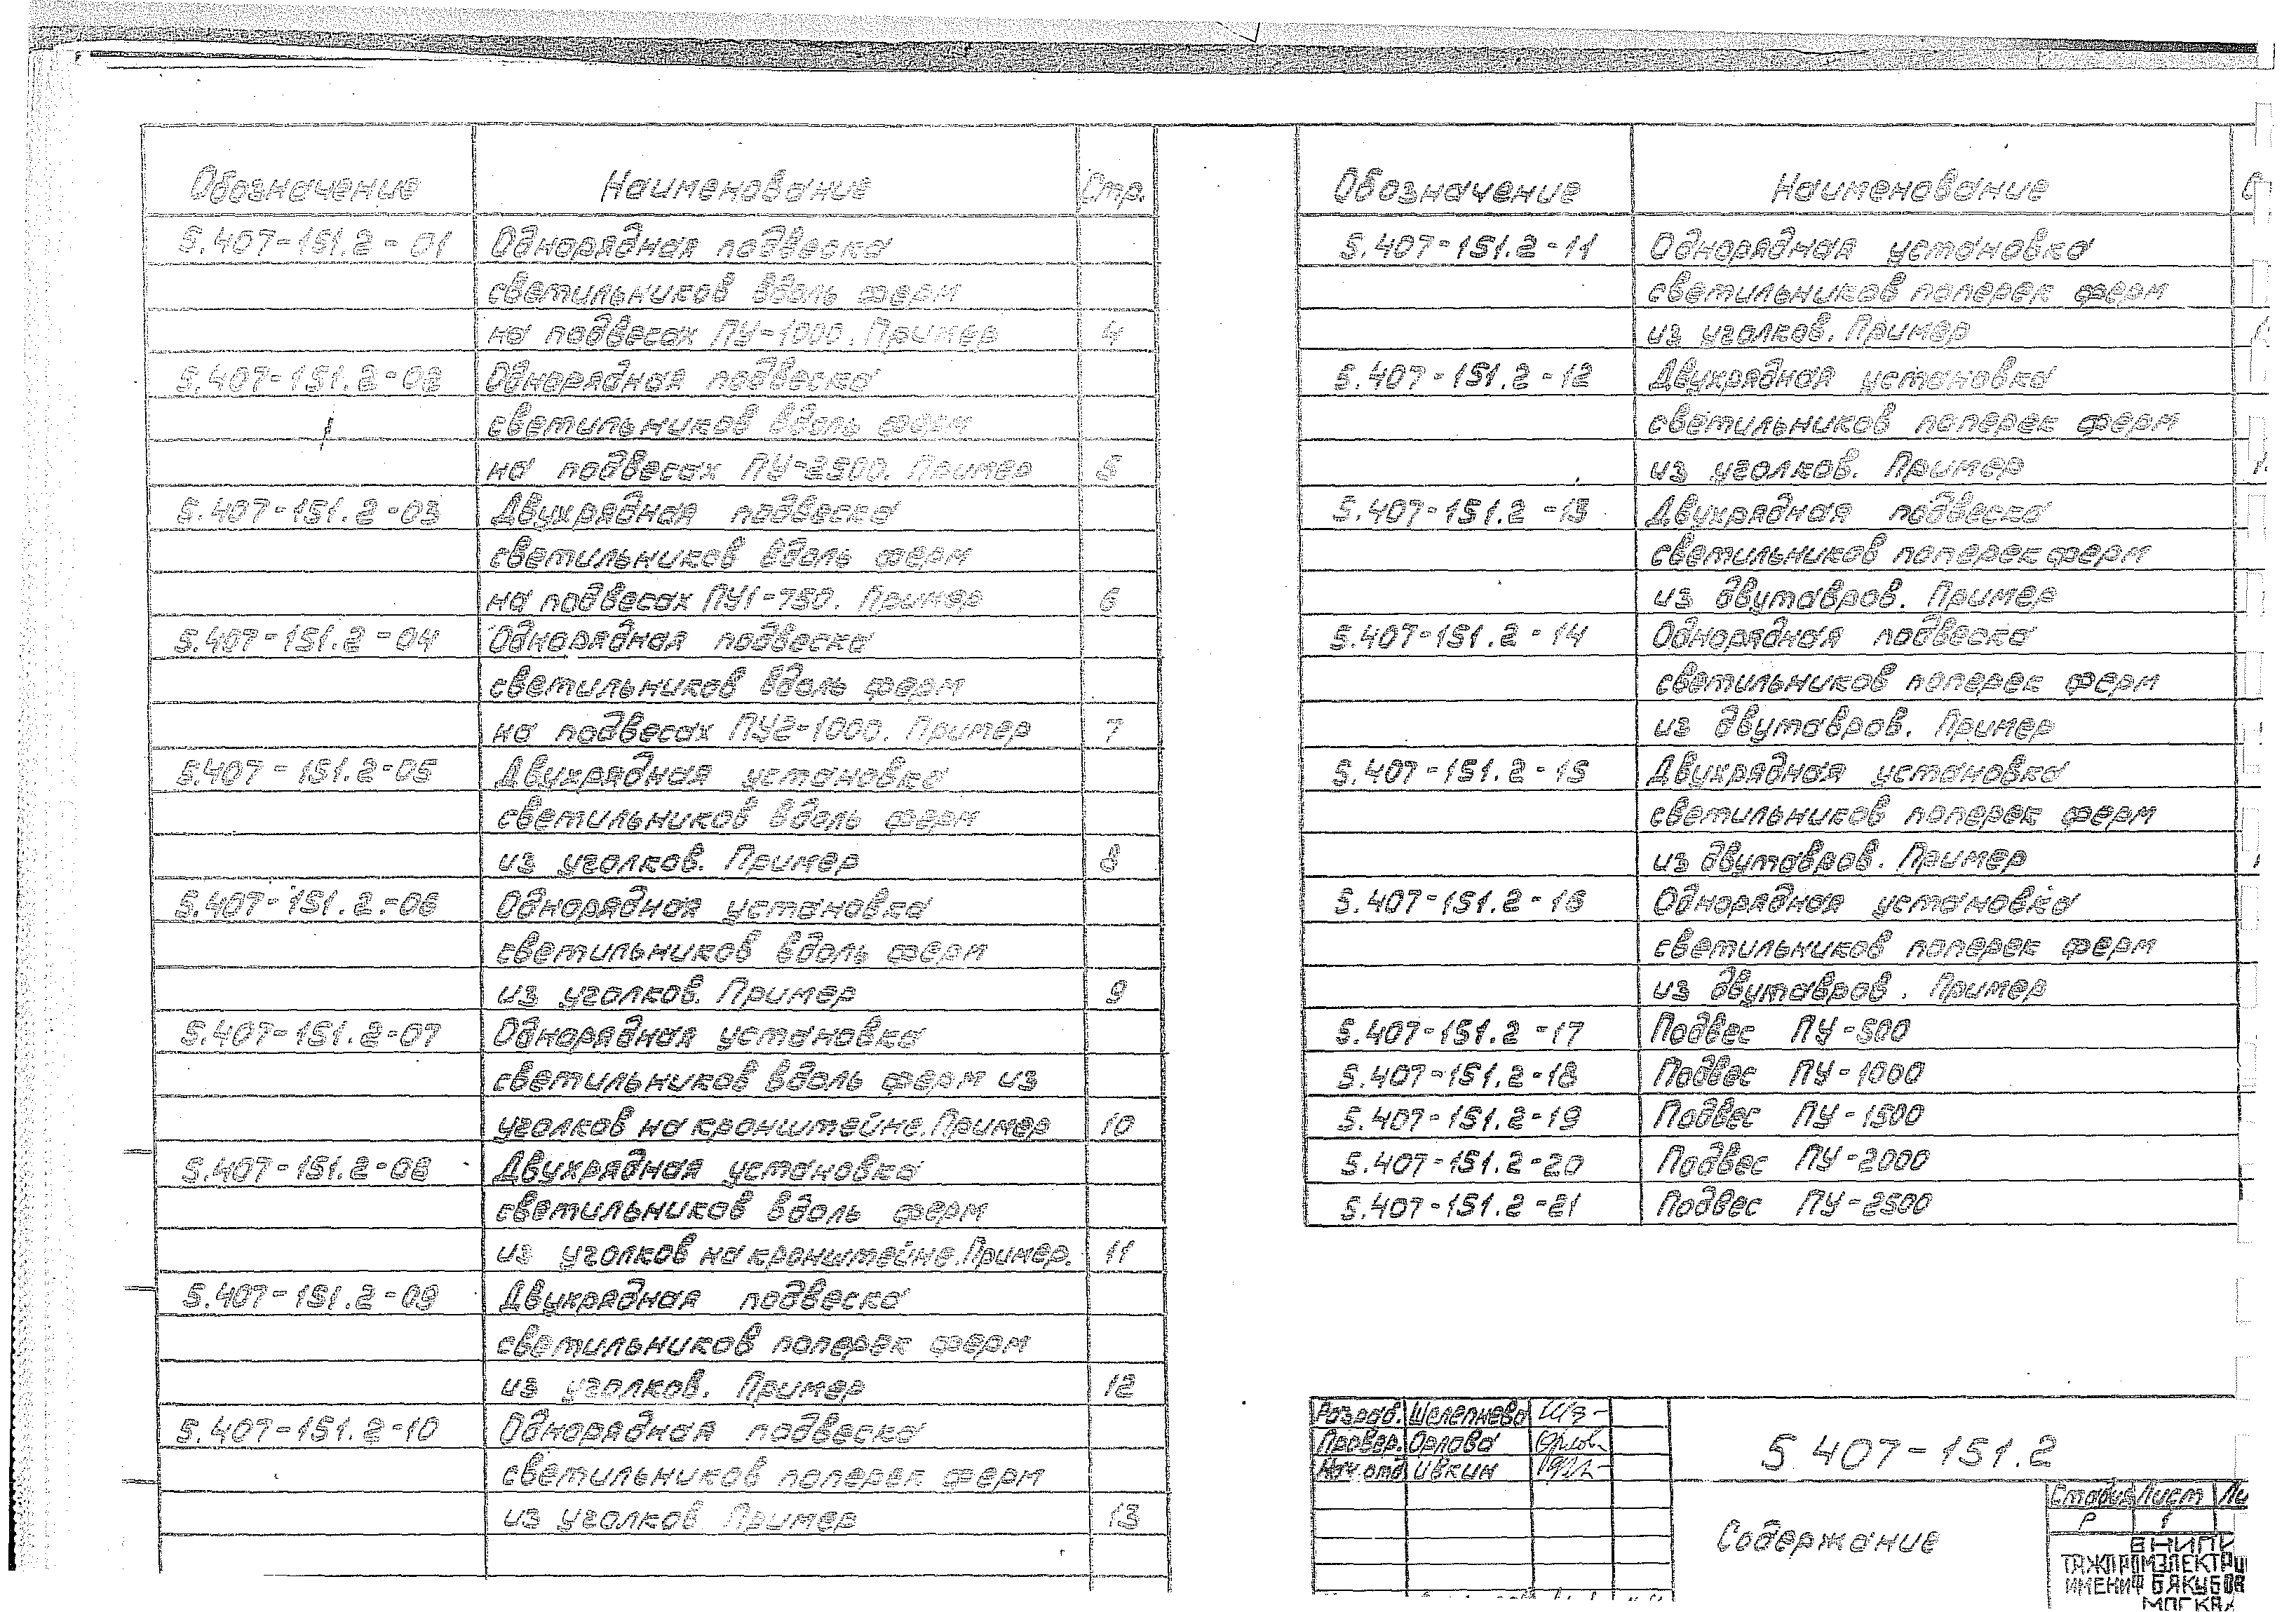 Обозначение Наименование Стр.
5.407-151.2-01 Однорядная подвеска
светильников вдоль ферм
на подвесах ПУ-1000. Пример 4
5.407-151.2-02 Однорядная подвеска
светильников вдоль ферм
на подвесах ПУ-2500. Пример 5
5.407-151.2-03 Двухрядная подвеска
светильников вдоль ферм
на подвесах ПУ1-750. Пример 6
5.407-151.2-04 Однорядная подвеска
светильников вдоль ферм
на подвесах ПУ2-1000. Пример 7
5.407-151.2-05 Двухрядная установка
светильников вдоль ферм
из уголков. Пример 8
5.407-151.2-06 Однорядная установка
светильников вдоль ферм
из уголков. Пример 9
5.407-151.2-07 Однорядная установка
светильников вдоль ферм из
уголков на кронштейне. Пример 10
5.407-151.2-08 Двухрядная установка
светильников вдоль ферм
из уголков на кронштейне. Пример. 11
5.407-151.2-09 Двухрядная подвеска
светильников поперек ферм
из уголков. Пример 12
5.407-151.2-10 Однорядная подвеска
светильников поперек ферм
из уголков Пример 13
Обозначение Наименование
5.407-151.2-11 Однорядная установка
светильников поперек ферм
из уголков. Пример
5.407-151.2-12 Двухрядная установка
светильников поперек ферм
из уголков. Пример
5.407-151.2-13 Двухрядная подвеска
светильников поперек ферм
из двутавров. Пример
5.407-151.2-14 Однорядная подвеска
светильников поперек ферм
из двутавров. Пример
5.407-151.2-15 Двухрядная установка
светильников поперек ферм
из двутавров. Пример
5.407-151.2-16 Однорядная установка
светильников поперек ферм
из двутавров. Пример
5.407-151.2-17 Подвес ПУ-500
5.407-151.2-18 Подвес ПУ-1000
5.407-151.2-19 Подвес ПУ-1500
5.407-151.2-20 Подвес ПУ-2000
5.407-151.2-21 Подвес ПУ-2500
Разраб. Шелепнева
Провер. Орлова
Нач. отд Ивкин
5.407-151.2
Содержание
Стадия Лист Ли
Р 1
ВНИПИ
ТЯЖПРОМЭЛЕКТРО
ИМЕНИ Ф Б ЯКУБОВ
МОСКВА